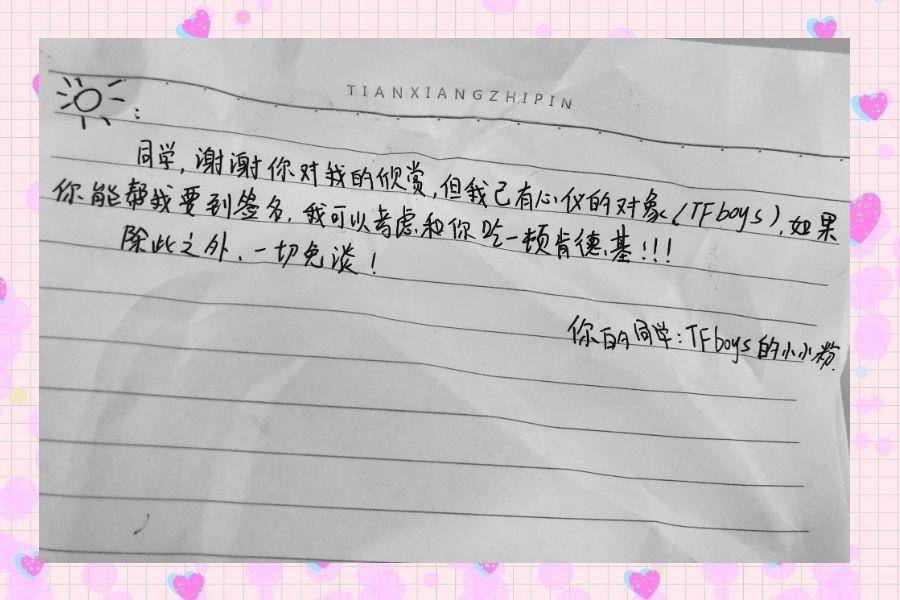 TIANXIANGZHIPIN
:
同学,谢谢你对我的欣赏,但我已有心仪的对象(TFboys),如果
你能帮我要到签名,我可以考虑和你吃一顿肯德基!!!
除此之外,一切免谈!
你的同学:TFboys的小小粉.